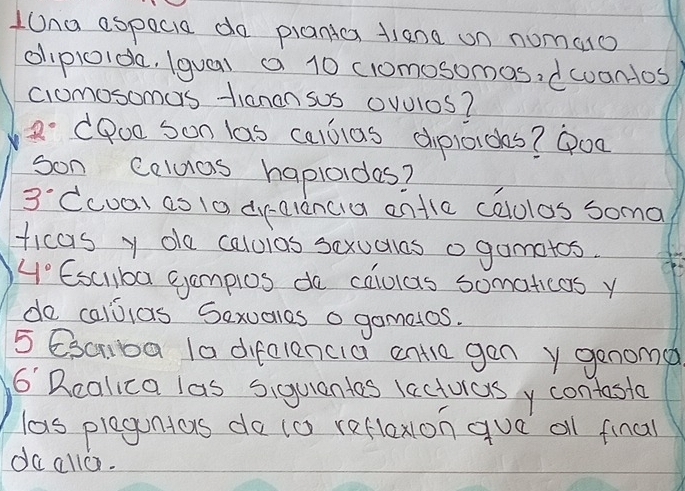 1 Una especie de planta tiene un numero
diploide. Igual a 10 cromosomas, ¿cuantos
cromosomas tienen sus ovulos?
2° ¿Que son las celúlas diploides? Que
son celulas haploides?
3° ¿cual es la diferencia entre células soma
ticas y de celulas sexuales o gametos.
4° Escriba ejemplos de células somaticas y
de celúlas Sexuales o gametos.
5 Escriba la diferencia entre gen y genoma.
6° Realica las siguientes lecturas y contesta
las preguntas de la reflexión que al final
de ella.